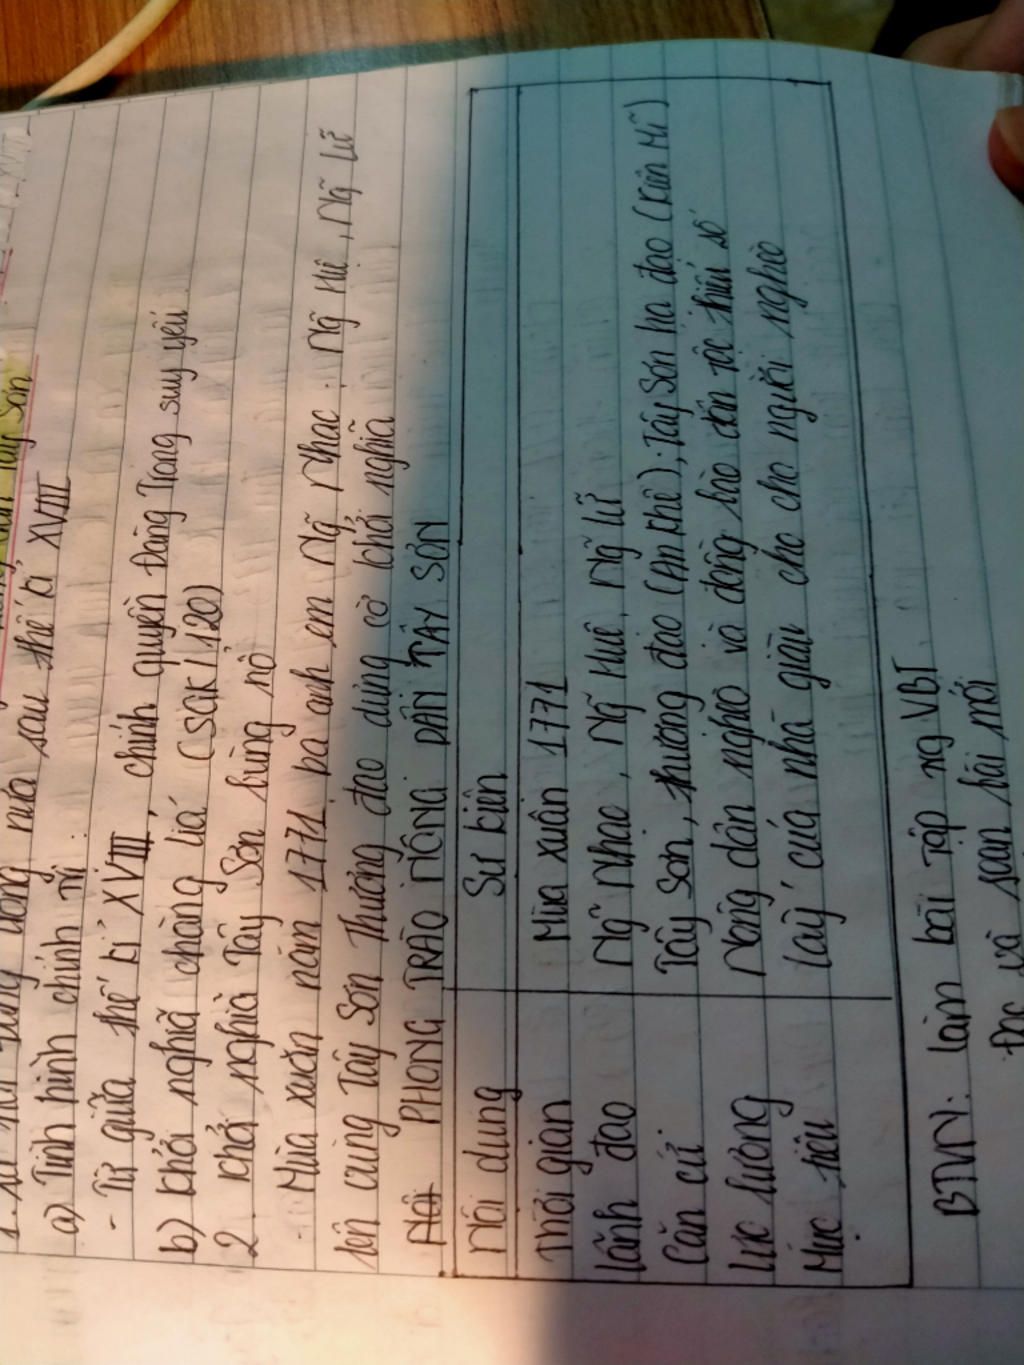 Tây Sơn
1.
nửa sau thế kỉ XVIII
a) Tình hình chính trị:
- Từ giữa thế kỉ XVIII, chính quyền Đàng Trong suy yếu
b) Khởi nghĩa chàng Lía (SGK/120)
2 Khởi nghĩa Tây Sơn bùng nổ
- Mùa xuân năm 1771, ba anh em Ng~ Nhạc, Ng~ Huệ, Ng~ Lữ
lên vùng Tây Sơn Thượng đạo dựng cờ khởi nghĩa
PHONG TRÀO NÔNG DÂN TÂY SƠN
Nội dung Sự kiện
Thời gian Mùa xuân 1771
Lãnh đạo Ng~ Nhạc, Ng~ Huệ, Ng~ Lữ
Căn cứ Tây Sơn, thượng đạo (An Khê), Tây Sơn hạ đạo (Kiên Mĩ)
Lực lượng Nông dân nghèo và đồng bào dân tộc thiểu số
Mục tiêu Lấy của nhà giàu cho cho người nghèo
BTVN: Làm bài tập ng VBT
Đọc và soạn bài mới